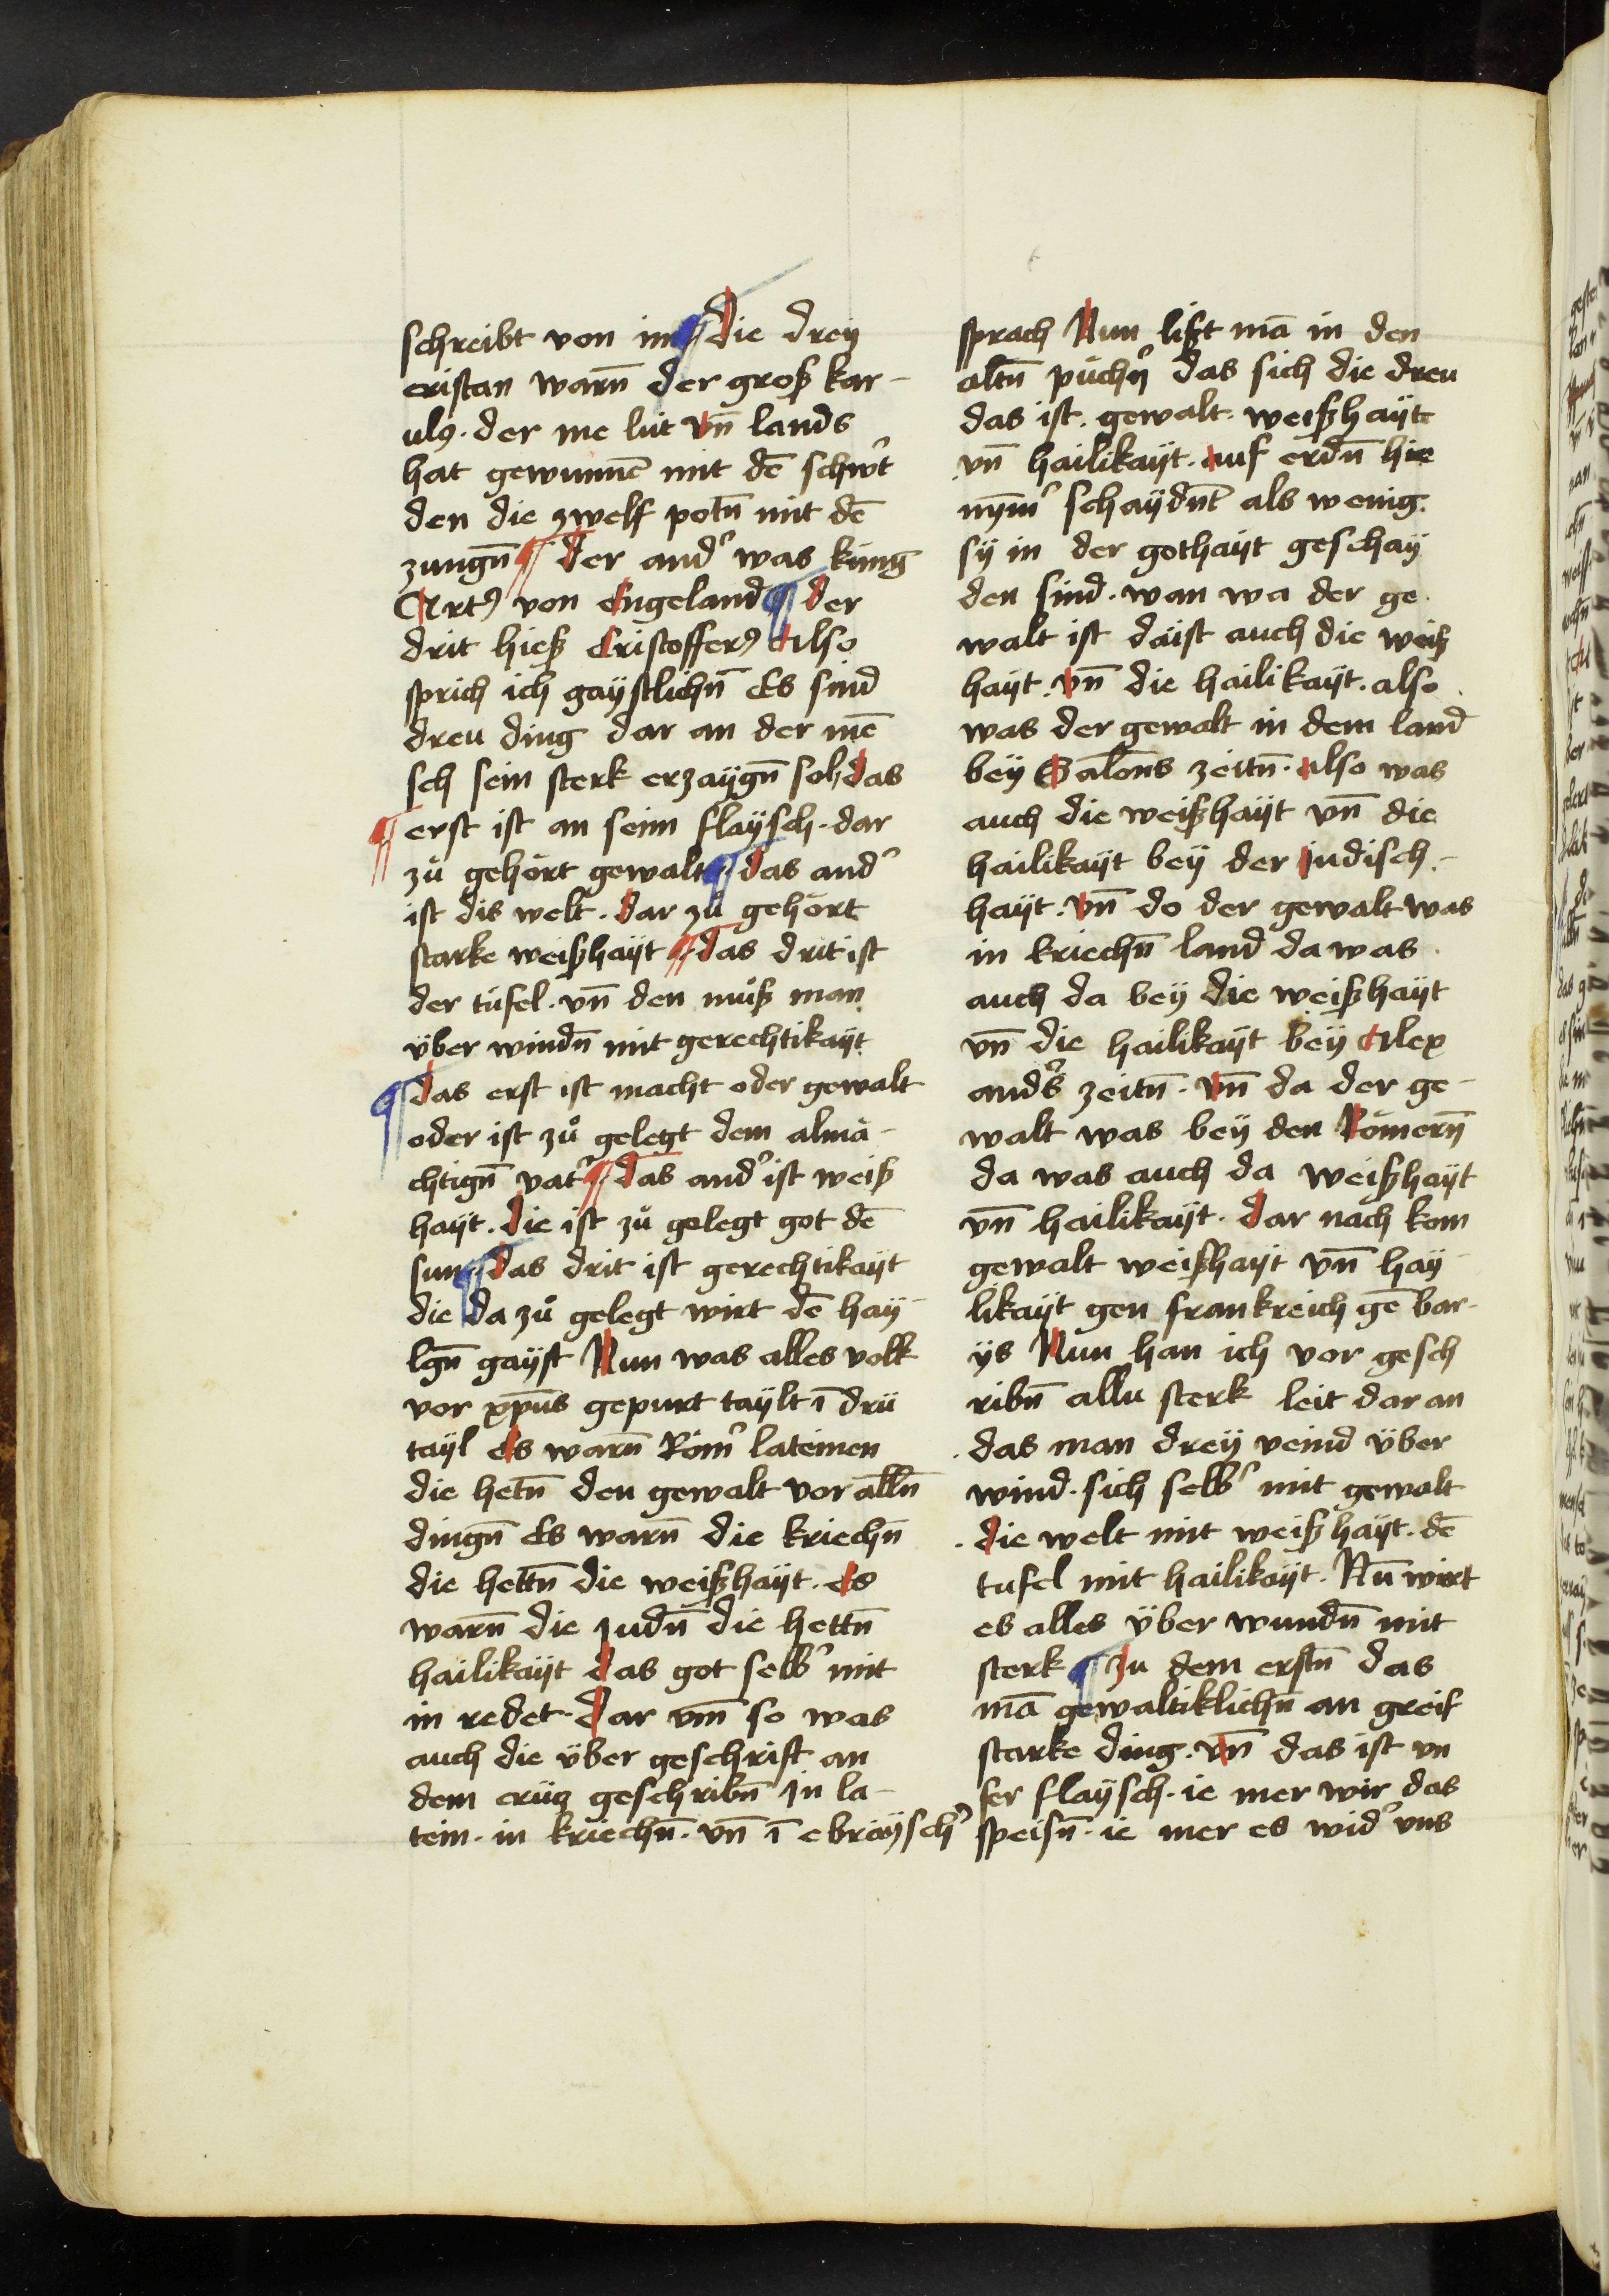 schreibt von im ¶ Die dreÿ
cristan warn̄ der groß kar-
ulꝯ. der me lüt vn̄ lands
hat gewunnē mit dē schwt̾
den die zwelf potn̄ mit dē
zungn̄ ¶ Der and̾ was küng
Artꝯ von Engeland ¶ der
drit hieß Cristofferꝯ Also
sprich ich gaÿstlichn̄ Es sind
dreu ding dar an der mē
sch sein sterk erzaÿgn̄ sol. das
¶ erst ist an seim flaÿsch. dar
zuͦ gehört gewalt ¶ das and̾
ist dis welt. dar zuͦ gehört
starke weißhaÿt ¶ das drit ist
der tüfel. vn̄ den muͦß man
über windn̄ mit gerechtikaÿt
¶ das erst ist macht oder gewalt
oder ist zuͦ gelegt dem almä-
chtign̄ vat̾ ¶ das and̾ ist weiß
haÿt. die ist zuͦ gelegt got dē
sun. ¶ das drit ist gerechtikaÿt
die da zuͦ gelegt wirt dē haÿ-
lgn̄ gaÿst Nun was alles volk
vor xp̄us gepurt taÿlt ī drü
taÿl Es warn̄ Röm̾ lateinen
die hetn̄ den gewalt vor alln̄
dingn̄ Es warn̄ die kriechn̄
die hettn̄ die weißhaÿt. Es
warn̄ die Judn̄ die hettn̄
hailikaÿt das got selb̾ mit
in redet. Dar vm̄ so was
auch die über geschrift an
dem crüg geschribn̄ Jn la-
tein. in kriechn̄. vn̄ ī ebraÿsch̾
sprach Nun lißt mā in den
altn̄ püchn̾ das sich die dreu
das ist. gewalt. weißhaÿt
vn̄ hailikaÿt. auf erdn̄ hie
nÿm̾ schaÿdn̄t als wenig.
sÿ in der gothaÿt geschaÿ
den sind. wan wa der ge.
walt ist däist auch die weiß
haÿt. vn̄ die hailikaÿt. also
was der gewalt in dem land
beÿ Salons zeitn̄. also was
auch die weißhaÿt vn̄ die
hailikaÿt beÿ der judisch.-
haÿt. vn̄ do der gewalt was
in kriechn̄ land da was
auch da beÿ die weißhaÿt
vn̄ die hailikaÿt beÿ Alex
and̾s zeitn̄. vn̄ da der ge-
walt was beÿ den Römern̄
da was auch da weißhaÿt
vn̄ hailikaÿt. dar nach kom
gewalt weißhaÿt vn̄ haÿ-
likaÿt gen frankreich gē bar-
ÿs Nun han ich vor gesch
ribn̄ allu sterk leit dar an
das man dreÿ veind über
wind. sich selb̾ mit gewalt
. die welt mit weißhaÿt. dē
tufel mit hailikaÿt. Nū wirt
es alles über wundn̄ mit
sterk ¶ Zu dem erstn̄ das
mā gewaltiklichn̄ an greif
starke ding. vn̄ das ist vn
ser flaÿsch. ie mer wir das
speisn̄. ie mer es wid̾ vns